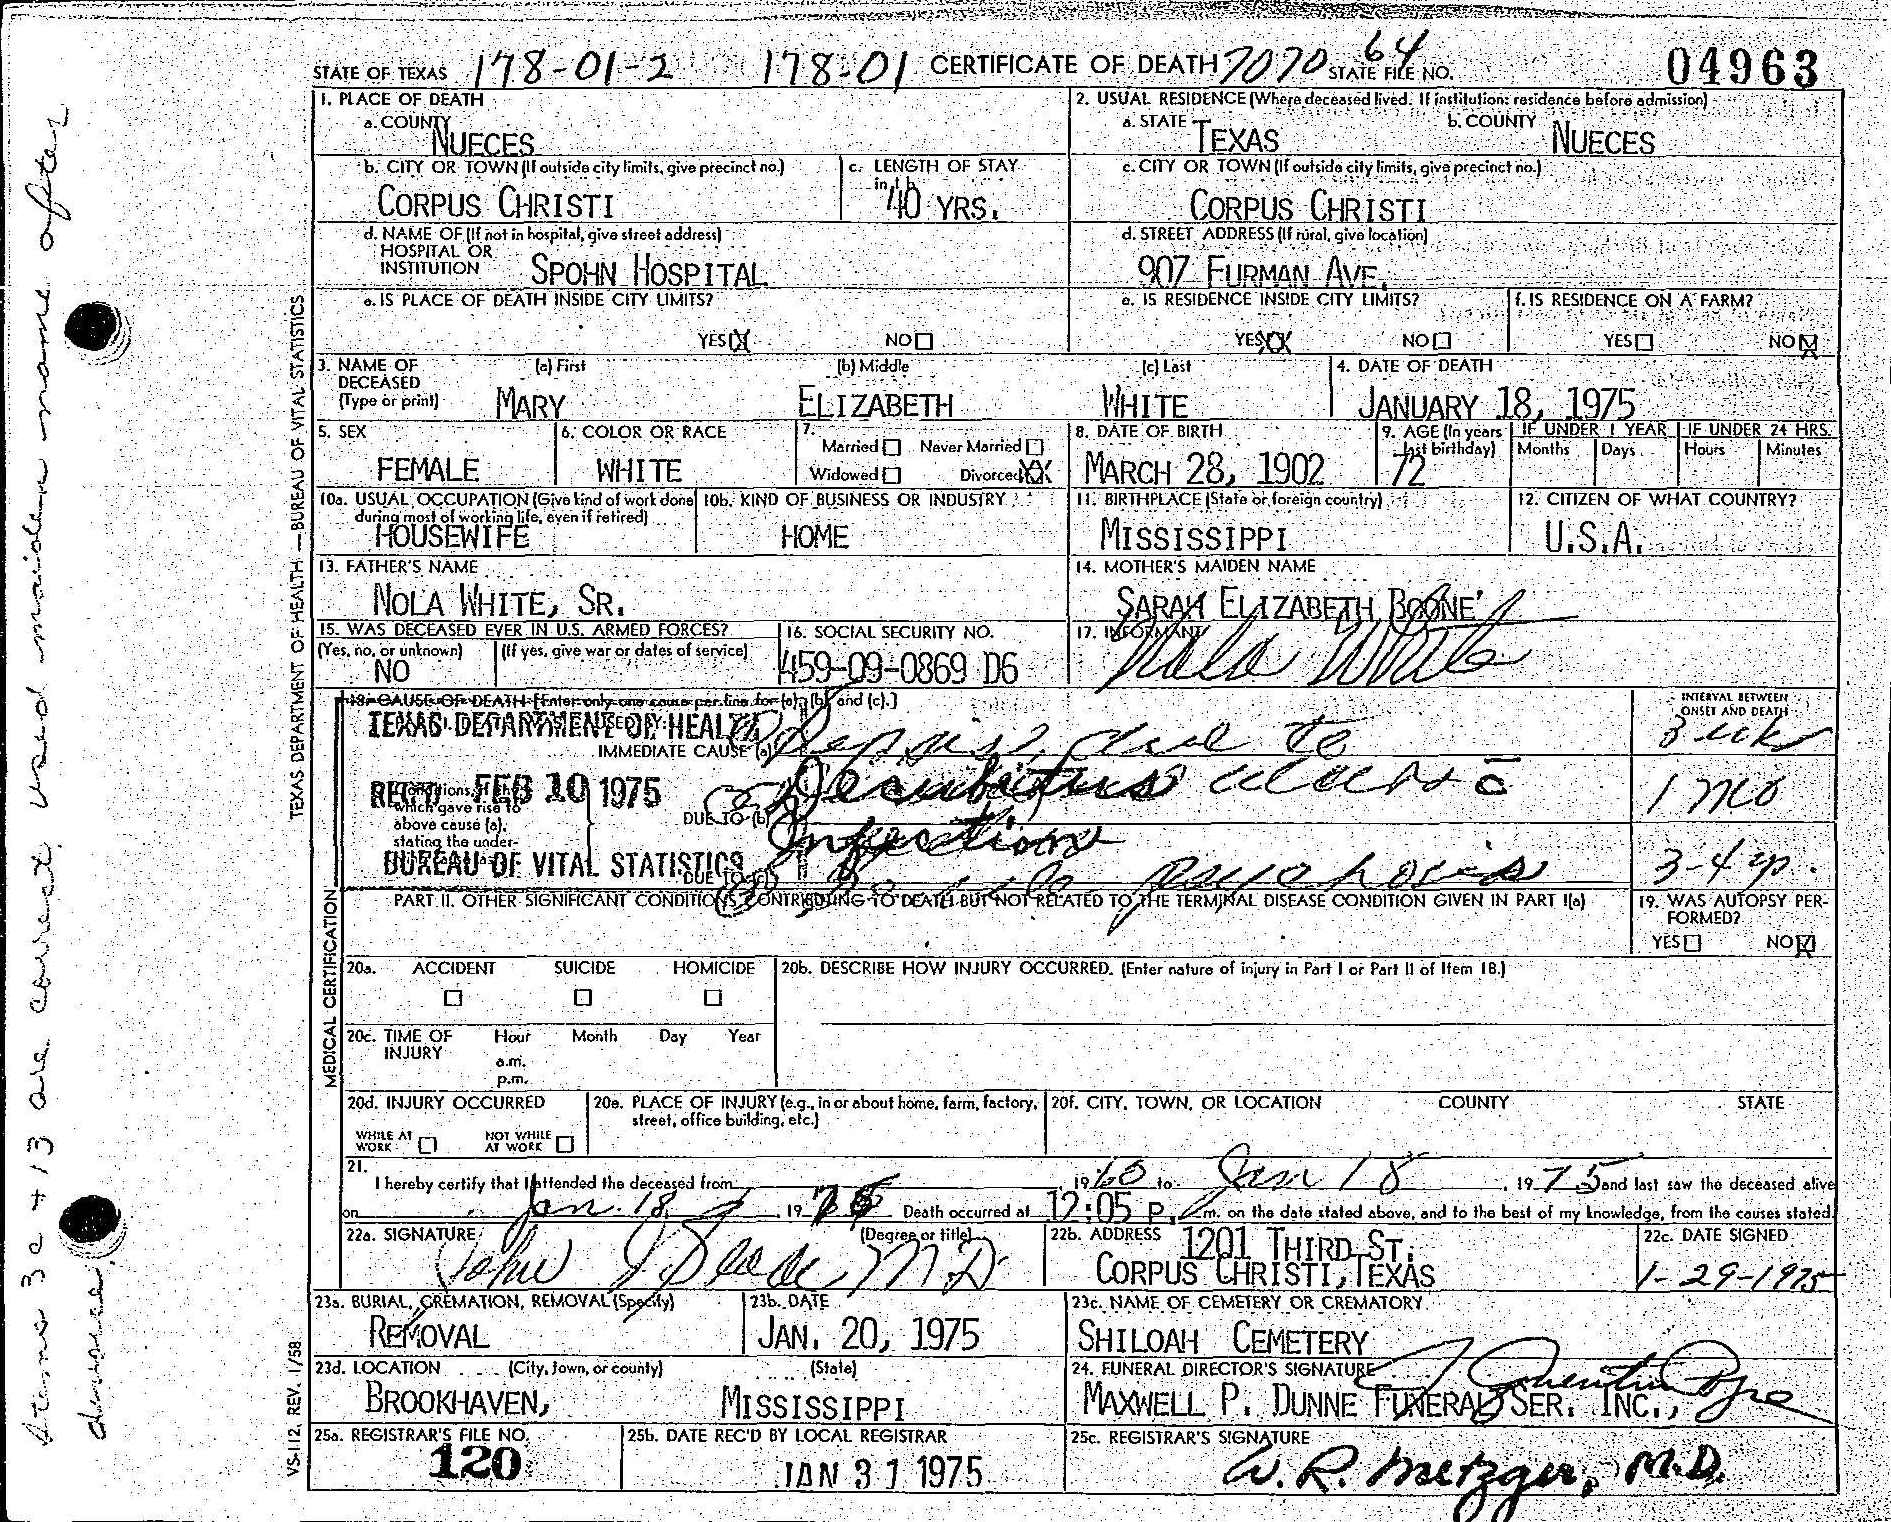 STATE OF TEXAS 178-01-2 178-01 CERTIFICATE OF DEATH 7070 64 STATE FILE NO. 04963
1. PLACE OF DEATH
a. COUNTY
NUECES
2. USUAL RESIDENCE (Where deceased lived. If institution: residence before admission)
a. STATE TEXAS b. COUNTY NUECES
b. CITY OR TOWN (If outside city limits, give precinct no.)
CORPUS CHRISTI
c. LENGTH OF STAY
40 YRS.
c. CITY OR TOWN (If outside city limits, give precinct no.)
CORPUS CHRISTI
d. NAME OF (If not in hospital, give street address)
HOSPITAL OR
INSTITUTION SPOHN HOSPITAL
d. STREET ADDRESS (If rural, give location)
907 FURMAN AVE.
e. IS PLACE OF DEATH INSIDE CITY LIMITS?
YES X NO
e. IS RESIDENCE INSIDE CITY LIMITS?
YES XX NO
f. IS RESIDENCE ON A FARM?
YES NO X
3. NAME OF DECEASED (Type or print)
(a) First (b) Middle (c) Last
MARY ELIZABETH WHITE
4. DATE OF DEATH
JANUARY 18, 1975
5. SEX
FEMALE
6. COLOR OR RACE
WHITE
7.
Married Never Married
Widowed Divorced XX
8. DATE OF BIRTH
MARCH 28, 1902
9. AGE (In years last birthday)
72
IF UNDER 1 YEAR
Months Days
IF UNDER 24 HRS.
Hours Minutes
10a. USUAL OCCUPATION (Give kind of work done
during most of working life, even if retired)
HOUSEWIFE
10b. KIND OF BUSINESS OR INDUSTRY
HOME
11. BIRTHPLACE (State or foreign country)
MISSISSIPPI
12. CITIZEN OF WHAT COUNTRY?
U.S.A.
13. FATHER'S NAME
NOLA WHITE, SR.
14. MOTHER'S MAIDEN NAME
SARAH ELIZABETH BOONE
15. WAS DECEASED EVER IN U.S. ARMED FORCES?
(Yes, no, or unknown) (If yes, give war or dates of service)
NO
16. SOCIAL SECURITY NO.
459-09-0869 D6
17. INFORMANT
Nola White
18. CAUSE OF DEATH [Enter only one cause per line for (a), (b) and (c).]
INTERVAL BETWEEN
ONSET AND DEATH
TEXAS DEPARTMENT OF HEALTH
IMMEDIATE CAUSE (a) Sepsis, due to
REC'D FEB 10 1975
which gave rise to
above cause (a),
stating the under-
DUE TO (b) Decubitus ulcers c̄ 1 mo
Infection
BUREAU OF VITAL STATISTICS
DUE TO (c) Senile psychosis 3-4 yr.
PART II. OTHER SIGNIFICANT CONDITIONS CONTRIBUTING TO DEATH BUT NOT RELATED TO THE TERMINAL DISEASE CONDITION GIVEN IN PART I(a)
19. WAS AUTOPSY PER-
FORMED?
YES NO X
20a. ACCIDENT SUICIDE HOMICIDE
20b. DESCRIBE HOW INJURY OCCURRED. (Enter nature of injury in Part I or Part II of Item 18.)
20c. TIME OF INJURY Hour Month Day Year
a.m.
p.m.
20d. INJURY OCCURRED
WHILE AT WORK NOT WHILE AT WORK
20e. PLACE OF INJURY (e.g., in or about home, farm, factory,
street, office building, etc.)
20f. CITY, TOWN, OR LOCATION COUNTY STATE
21.
I hereby certify that I attended the deceased from 1960 to Jan 18, 1975 and last saw the deceased alive
on Jan. 18, 1975 Death occurred at 12:05 P. m. on the date stated above, and to the best of my knowledge, from the causes stated.
22a. SIGNATURE (Degree or title)
John MD
22b. ADDRESS 1201 THIRD ST.
CORPUS CHRISTI, TEXAS
22c. DATE SIGNED
1-29-1975
23a. BURIAL, CREMATION, REMOVAL (Specify)
REMOVAL
23b. DATE
JAN. 20, 1975
23c. NAME OF CEMETERY OR CREMATORY
SHILOAH CEMETERY
23d. LOCATION (City, town, or county) (State)
BROOKHAVEN, MISSISSIPPI
24. FUNERAL DIRECTOR'S SIGNATURE
MAXWELL P. DUNNE FUNERAL SER. INC.,
25a. REGISTRAR'S FILE NO.
120
25b. DATE REC'D BY LOCAL REGISTRAR
JAN 31 1975
25c. REGISTRAR'S SIGNATURE
W. R. Metzger, M.D.
TEXAS DEPARTMENT OF HEALTH — BUREAU OF VITAL STATISTICS
MEDICAL CERTIFICATION
VS-112, REV. 1/58
Items 3c + 13 are correct used maiden name after
divorce.